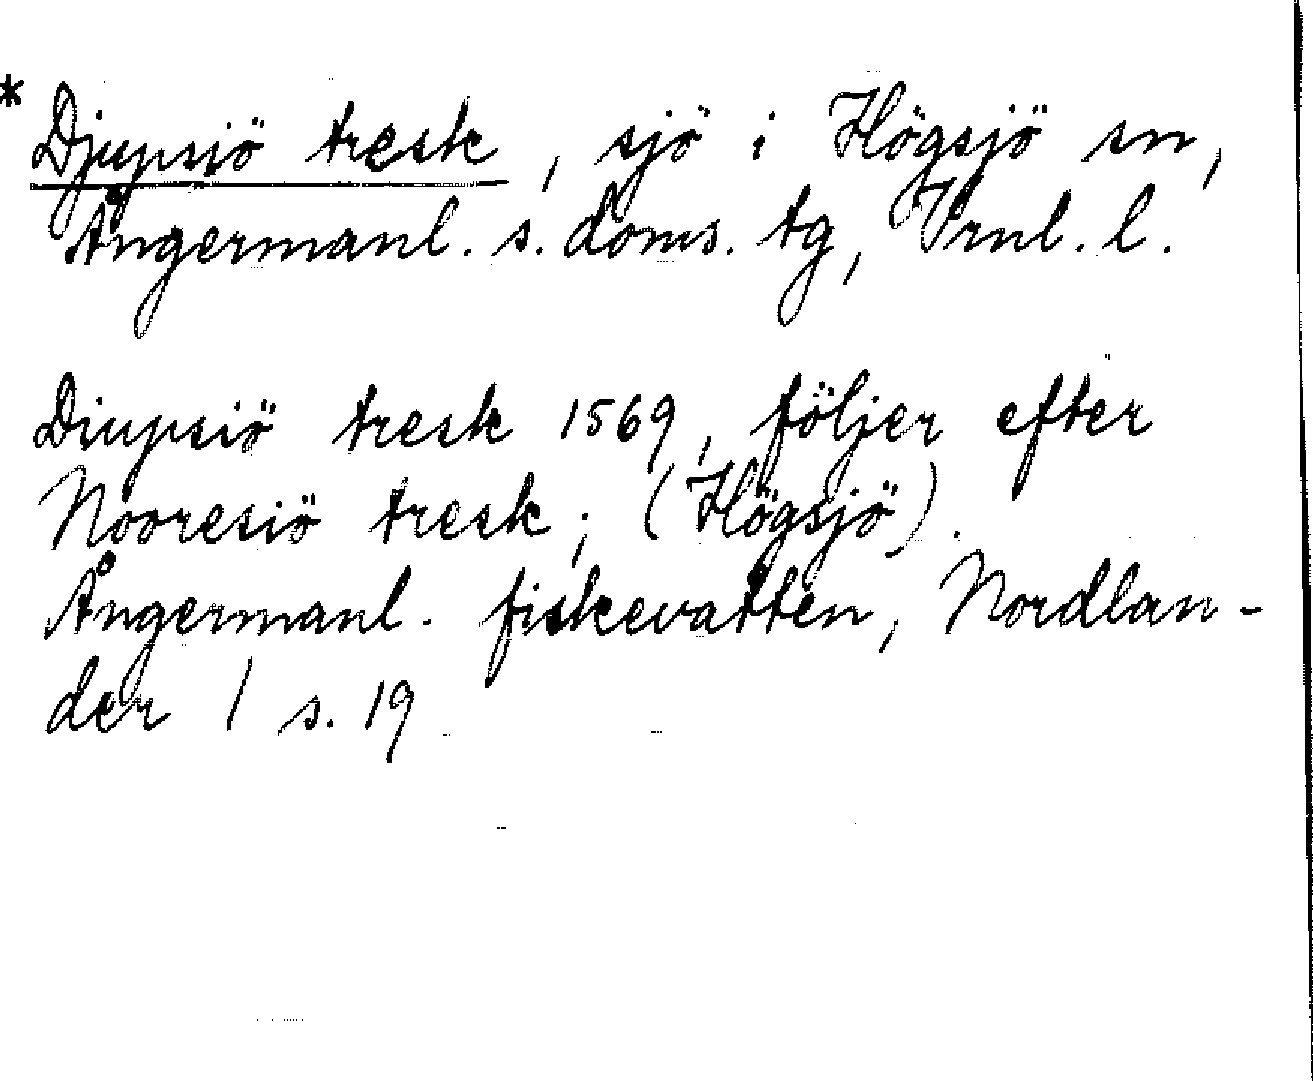 * Djupsiö tresk, sjö i Högsjö sn,
Ångermanl. s. doms. tg, Vrnl. l.
Diupsiö tresk 1569, följer efter
Nooresiö tresk; (Högsjö).
Ångermanl. fiskevatten, Nordlan-
der 1 s. 19